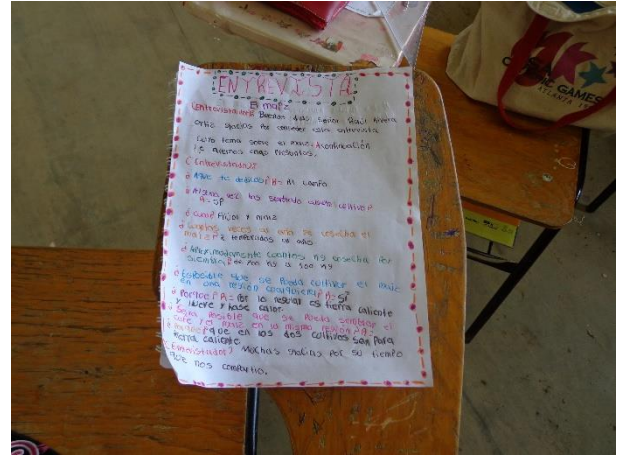 ENTREVISTA
El maíz
(Entrevistador) Buenos días Señor Raúl Rivera
Ortiz gracias por conceder esta entrevista
cuyo tema sera el maíz. Acontinuación
le haremos unas preguntas.
(Entrevistado)
¿A que te dedicas? R= Al campo
¿Alguna vez has sembrado algún cultivo?
R= Sí
¿Cuál? Frijol y maíz
¿Cuantas veces al año se cosecha el
maíz? 2 temporadas al año
¿Aproximadamente cuantos kg cosecha por
siembra? 500 kg
¿Es posible que se pueda cultivar el maíz
en una región cualquiera? R= Sí
¿Porque? R= Por lo regular es tierra caliente
y llueve y hase calor.
¿Sera posible que se pueda sembrar el
café y maíz en la misma región? R=
¿Porque? que en los dos cultivos son para
tierra caliente.
(Entrevistador) Muchas gracias por su tiempo
que nos compartio.
GAMES
ATLANTA